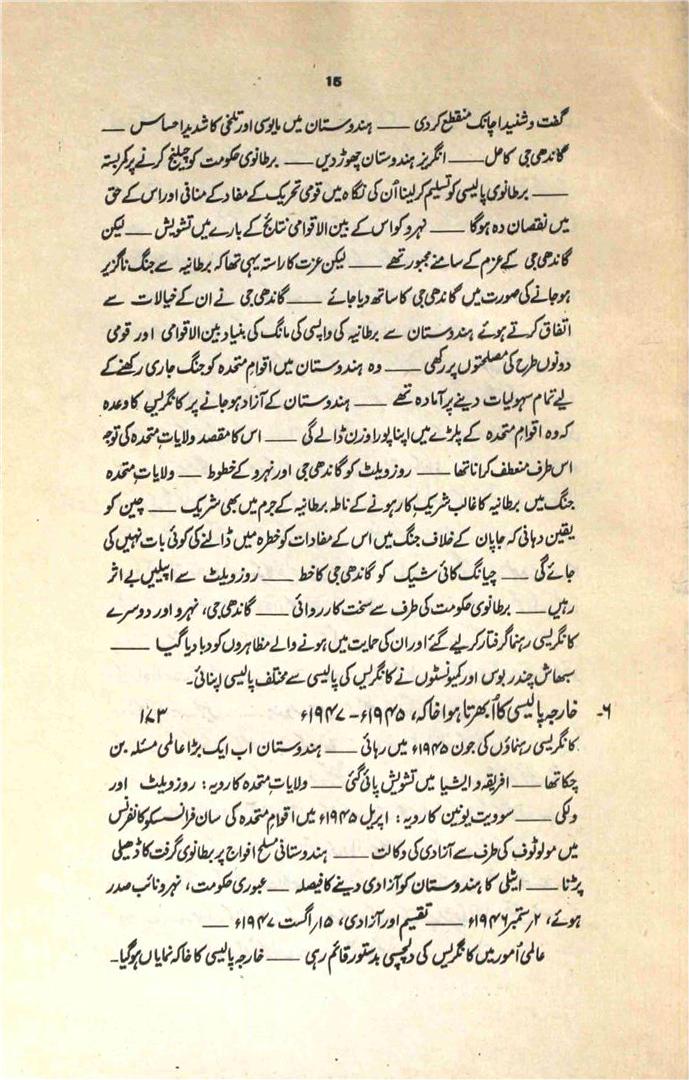 15
گفت و شنید اچانک منقطع کر دی —— ہندوستان میں مایوسی اور تلخی کا شدید احساس ——
گاندھی جی کا حل —— انگریز ہندوستان چھوڑ دیں —— برطانوی حکومت کو چیلنج کرنے پر کمربستہ
—— برطانوی پالیسی کو تسلیم کر لینا اُن کی نگاہ میں قومی تحریک کے مفاد کے منافی اور اس کے حق
میں نقصان دہ ہوگا —— نہرو کو اس کے بین الاقوامی نتائج کے بارے میں تشویش —— لیکن
گاندھی جی کے عزم کے سامنے مجبور تھے —— لیکن عزت کا راستہ یہی تھا کہ برطانیہ سے جنگ ناگزیر
ہو جانے کی صورت میں گاندھی جی کا ساتھ دیا جائے —— گاندھی جی نے ان کے خیالات سے
اتفاق کرتے ہوئے ہندوستان سے برطانیہ کی واپسی کی مانگ کی بنیاد بین الاقوامی اور قومی
دونوں طرح کی مصلحتوں پر رکھی —— وہ ہندوستان میں اقوام متحدہ کو جنگ جاری رکھنے کے
لیے تمام سہولیات دینے پر آمادہ تھے —— ہندوستان کے آزاد ہو جانے پر کانگریس کا وعدہ
کہ وہ اقوام متحدہ کے پلڑے میں اپنا پورا وزن ڈالے گی —— اس کا مقصد ولایات متحدہ کی توجہ
اس طرف منعطف کرانا تھا —— روزویلٹ کو گاندھی جی اور نہرو کے خطوط —— ولایاتِ متحدہ
جنگ میں برطانیہ کا غالب شریکِ کار ہونے کے ناطہ برطانیہ کے جرم میں بھی شریک —— چین کو
یقین دہانی کہ جاپان کے خلاف جنگ میں اس کے مفادات کو خطرہ میں ڈالنے کی کوئی بات نہیں کی
جائے گی —— چیانگ کائی شیک کو گاندھی جی کا خط —— روزویلٹ سے اپیلیں بے اثر
رہیں —— برطانوی حکومت کی طرف سے سخت کارروائی —— گاندھی جی، نہرو اور دوسرے
کانگریسی رہنما گرفتار کر لیے گئے اور ان کی حمایت میں ہونے والے مظاہروں کو دبا دیا گیا ——
سبھاش چندر بوس اور کمیونسٹوں نے کانگریس کی پالیسی سے مختلف پالیسی اپنائی۔
۶۔ خارجہ پالیسی کا اُبھرتا ہوا خاکہ، ۱۹۴۵ء - ۱۹۴۷ء ۱۷۳
کانگریسی رہنماؤں کی جون ۱۹۴۵ء میں رہائی —— ہندوستان اب ایک بڑا عالمی مسئلہ بن
چکا تھا —— افریقہ و ایشیا میں تشویش پائی گئی —— ولایات متحدہ کا رویہ: روزویلٹ اور
ولکی —— سوویت یونین کا رویہ: اپریل ۱۹۴۵ء میں اقوام متحدہ کی سان فرانسسکو کانفرنس
میں مولوٹوف کی طرف سے آزادی کی وکالت —— ہندوستانی مسلح افواج پر برطانوی گرفت کا ڈھیلی
پڑنا —— ایٹلی کا ہندوستان کو آزادی دینے کا فیصلہ —— عبوری حکومت، نہرو نائب صدر
ہوئے، ۲ ستمبر ۱۹۴۶ء —— تقسیم اور آزادی، ۱۵ اگست ۱۹۴۷ء ——
عالمی اُمور میں کانگریس کی دلچسپی بدستور قائم رہی —— خارجہ پالیسی کا خاکہ نمایاں ہو گیا۔